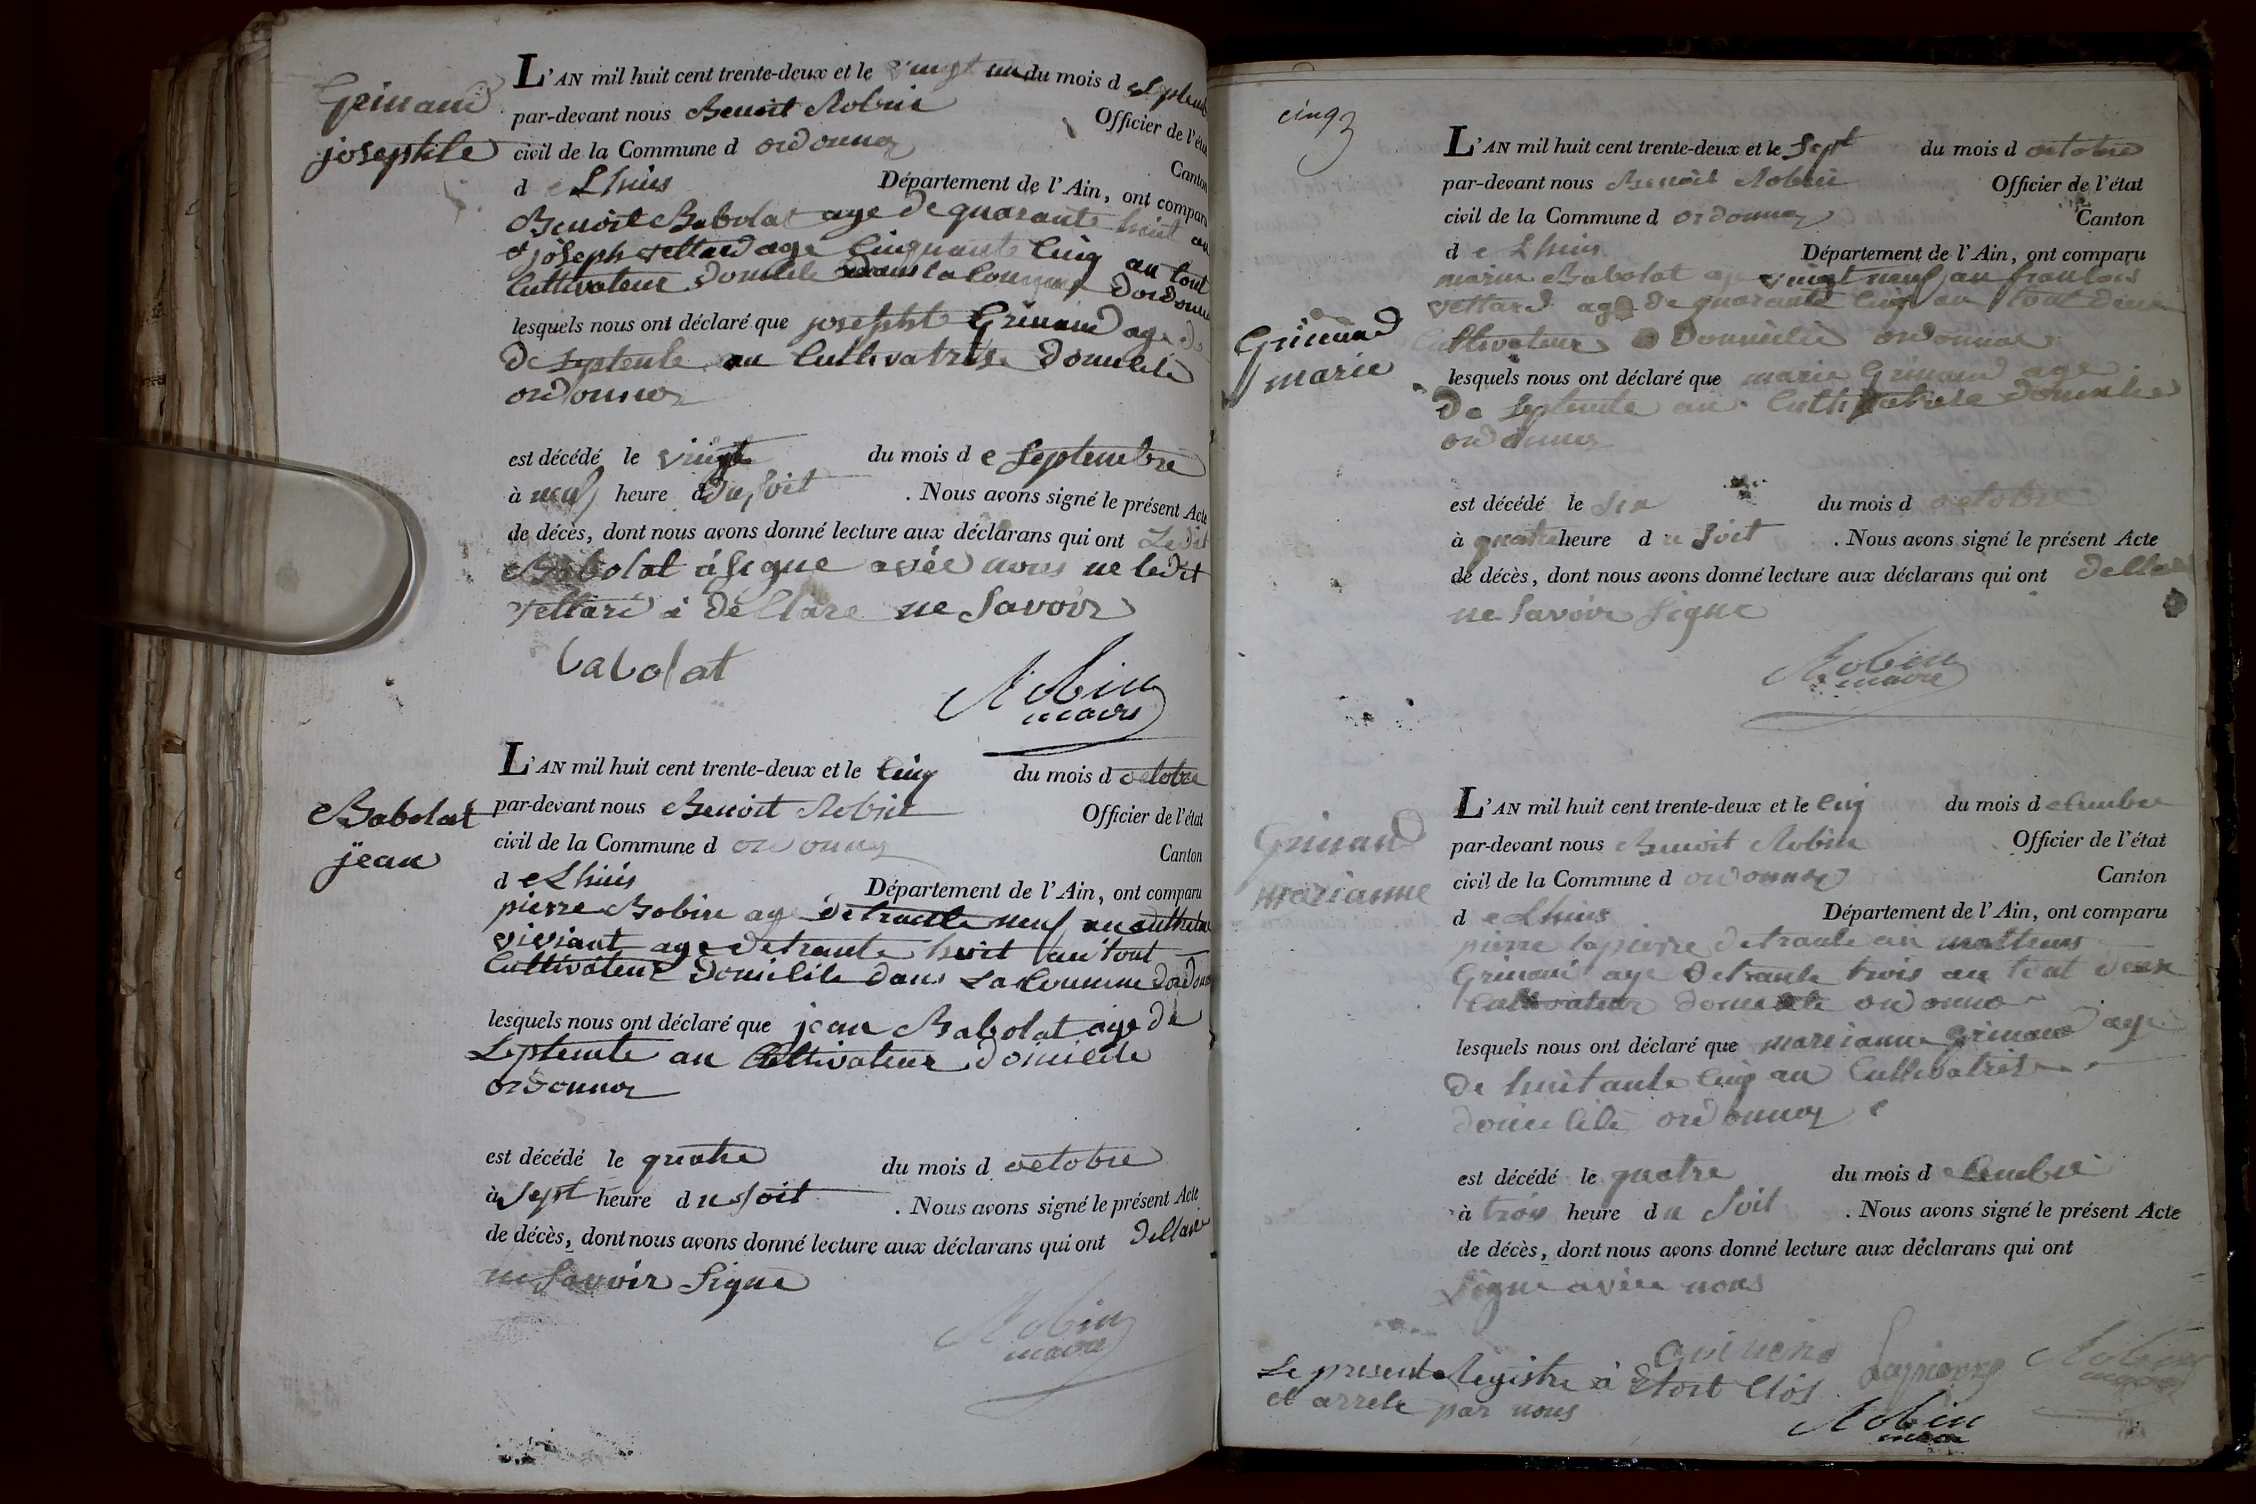 Grinand
josephte
L'AN mil huit cent trente-deux et le vingt un du mois d e septemb
par-devant nous Benoit Robin Officier de l'état
civil de la Commune d ordonnaz Canton
d e Lhuis Département de l'Ain, ont comparu
Benoit Babolat age de quarante huit an
et joseph vettard age Cinquante Cinq an tout
Cultivateur domicile dans la Commune dordonna
lesquels nous ont déclaré que josephte Grinand age de
de septente an Cultivatrise domicile
ordonnaz
est décédé le vingt du mois d e septembre
à neuf heure du soit . Nous avons signé le présent Acte
de décès, dont nous avons donné lecture aux déclarans qui ont Ledit
Babolat a signe avée nous ne ledit
vettard a declare ne savoir
babolat
Robin
maire
Babolat
jean
L'AN mil huit cent trente-deux et le Cinq du mois d octobre
par-devant nous Benoit Robin Officier de l'état
civil de la Commune d ordonnaz Canton
d e Lhuis Département de l'Ain, ont comparu
pierre Robin age de trante neuf an
viviant age de trante huit an tout
Cultivateur domicile dans La Commune dordonna
lesquels nous ont déclaré que jean Babolat age de
septente an Cultivateur domicile
ordonnaz
est décédé le quatre du mois d octobre
à sept heure d u soit . Nous avons signé le présent Acte
de décès, dont nous avons donné lecture aux déclarans qui ont dellare
ne savoir signe
Robin
maire
cinq
Grinand
marie
L'AN mil huit cent trente-deux et le sept du mois d octobre
par-devant nous Benoit Robin Officier de l'état
civil de la Commune d ordonnaz Canton
d e Lhuis Département de l'Ain, ont comparu
marin Babolat age vingt neuf an francois
vettard age de quarante Cinq an tout deux
Cultivateur domicilie ordonnaz
lesquels nous ont déclaré que marie Grinand age
de septente an Cultivatrise domicilie
ordonnaz
est décédé le six du mois d octobre
à quatre heure d u soit . Nous avons signé le présent Acte
de décès, dont nous avons donné lecture aux déclarans qui ont dellare
ne savoir signe
Robin
maire
Grinand
marianne
L'AN mil huit cent trente-deux et le Cinq du mois d
par-devant nous Benoit Robin Officier de l'état
civil de la Commune d ordonnaz Canton
d e Lhuis Département de l'Ain, ont comparu
pierre lapierre de trante an
Grinand age de trante trois an tout deux
Cultivateur domicile ordonna
lesquels nous ont déclaré que marianne grinand age
de huitante Cinq an Cultivatrise
domicile ordonnaz
est décédé le quatre du mois d
à trois heure d u soit . Nous avons signé le présent Acte
de décès, dont nous avons donné lecture aux déclarans qui ont
signe avée nous
Lapierre Robin
maire
Le present Registre à Etoit Clos
et arrete par nous
Robin
maire